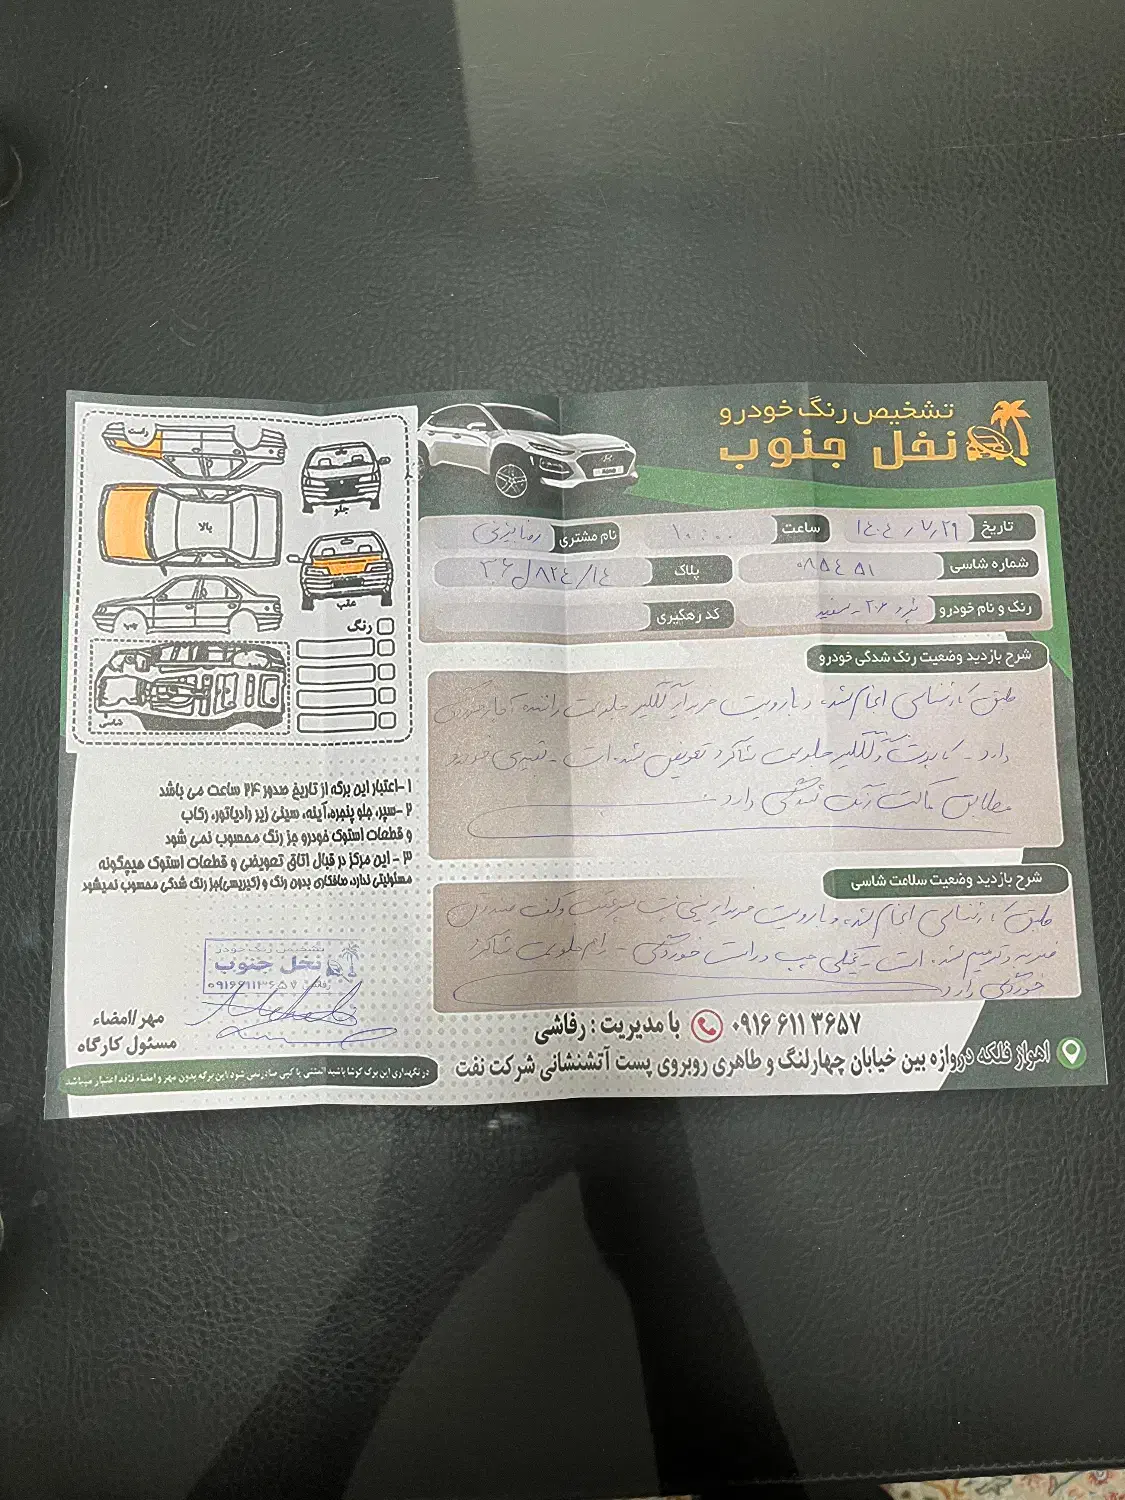 تشخیص رنگ خودرو
نخل جنوب
تاریخ ۱۴۰۴/۷/۲۹ ساعت ۱۰:۰۰ نام مشتری رضا
شماره شاسی ۰۸۵۴۵۱ پلاک ۱۴/ ۸۲۴ ل ۳۶
رنگ و نام خودرو پژو ۲۰۶ - سفید کد رهگیری
شرح بازدید وضعیت رنگ شدگی خودرو
طبق کارشناسی انجام شده و با رویت خریدار گلگیر جلو سمت راننده
دارد - کاپوت و گلگیر جلو سمت شاگرد تعویض شده است - خودرو
مطابق رنگ شدگی دارد
شرح بازدید وضعیت سلامت شاسی
طبق کارشناسی انجام شده و با رویت خریدار سینی پشت کف صندوق
ضربه و ترمیم شده است - چپ و راست خوردگی - رام جلو سمت شاگرد
خوردگی دارد
راست
بالا
چپ
شاسی
جلو
عقب
رنگ
۱-اعتبار این برگه از تاریخ صدور ۲۴ ساعت می باشد
۲-سپر، جلو پنجره،آینه، سینی زیر رادیاتور، رکاب
و قطعات استوک خودرو جز رنگ محسوب نمی شود
۳-این مرکز در قبال اتاق تعویضی و قطعات استوک هیچگونه
مسئولیتی ندارد، صافکاری بدون رنگ و (لیزری)جز رنگ شدگی محسوب نمیشود
تشخیص رنگ خودرو
نخل جنوب
رفاشی ۰۹۱۶۶۱۱۳۶۵۷
مهر/امضاء
مسئول کارگاه
با مدیریت : رفاشی ۰۹۱۶ ۶۱۱ ۳۶۵۷
اهواز فلکه دروازه بین خیابان چهارلنگ و طاهری روبروی پست آتشنشانی شرکت نفت
در نگهداری این برگ کوشا باشید المثنی یا کپی صادر نمی شود (این برگه بدون مهر و امضاء فاقد اعتبار میباشد)